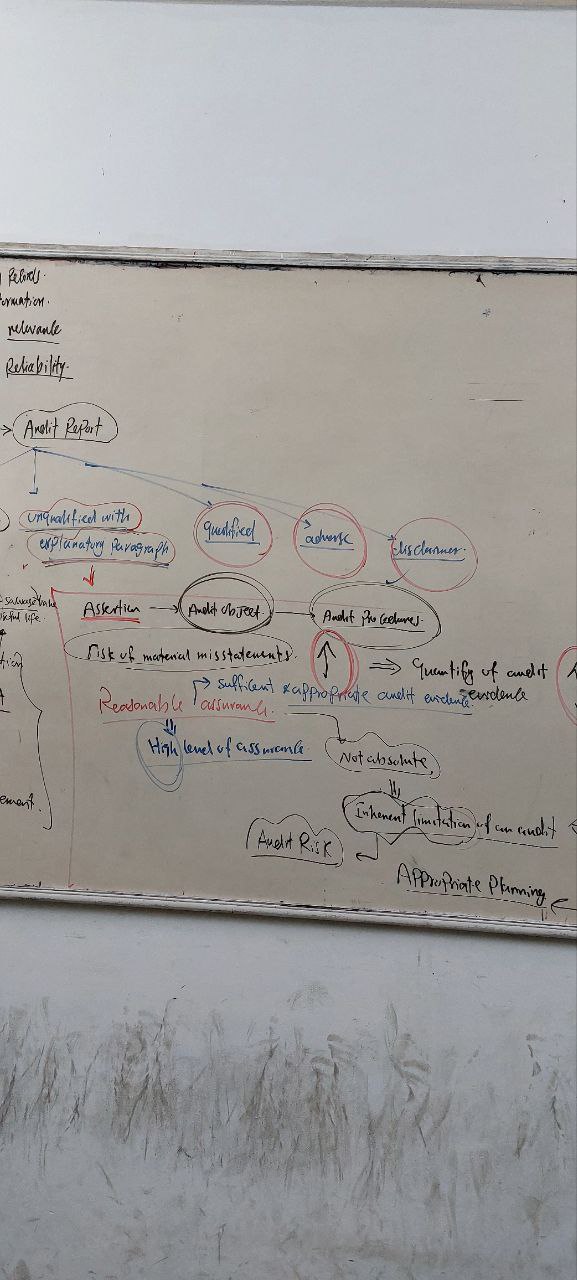 Records.
relevance
Reliability.
Audit Report
unqualified with
explanatory paragraph
qualified
adverse
disclaimer.
useful life.
Assertion → Audit object → Audit Procedures.
Risk of material misstatements.
↑ ⇒ Quantify of audit evidence
sufficient & appropriate audit evidence.
Reasonable assurance.
High level of assurance.
Not absolute,
Inherent limitation of an audit
Audit Risk
Appropriate Planning